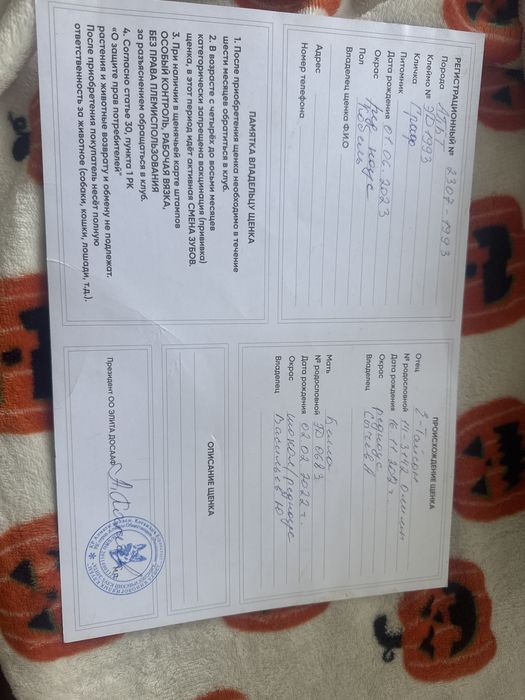 РЕГИСТРАЦИОННЫЙ № 2307-1993
Порода АПБТ
Клеймо № JD 1993
Кличка Граф
Питомник
Дата рождения 07.06.2023
Окрас
Пол кобель
Владелец щенка Ф.И.О
Адрес
Номер телефона
ПАМЯТКА ВЛАДЕЛЬЦУ ЩЕНКА
1. После приобретения щенка необходимо в течение
шести месяцев обратиться в клуб.
2. В возрасте с четырёх до восьми месяцев
категорически запрещена вакцинация (прививка)
щенка, в этот период идёт активная СМЕНА ЗУБОВ.
3. При наличии в щенячьей карте штампов
ОСОБЫЙ КОНТРОЛЬ, РАБОЧАЯ ВЯЗКА,
БЕЗ ПРАВА ПЛЕМИСПОЛЬЗОВАНИЯ
за разъяснением обращаться в клуб.
4. Согласно статье 30, пункта 1 РК
«О защите прав потребителей»
растения и животные возврату и обмену не подлежат.
После приобретения покупатель несёт полную
ответственность за животное (собаки, кошки, лошади, т.д.).
ПРОИСХОЖДЕНИЕ ЩЕНКА
Отец
№ родословной
Дата рождения
Окрас реднозе
Владелец
Мать
№ родословной JD 0083
Дата рождения 02.02.2022 г
Окрас шокол. реднозе
Владелец Васильев Ю
ОПИСАНИЕ ЩЕНКА
Президент ОО ЭЛИТА ДОСААФ